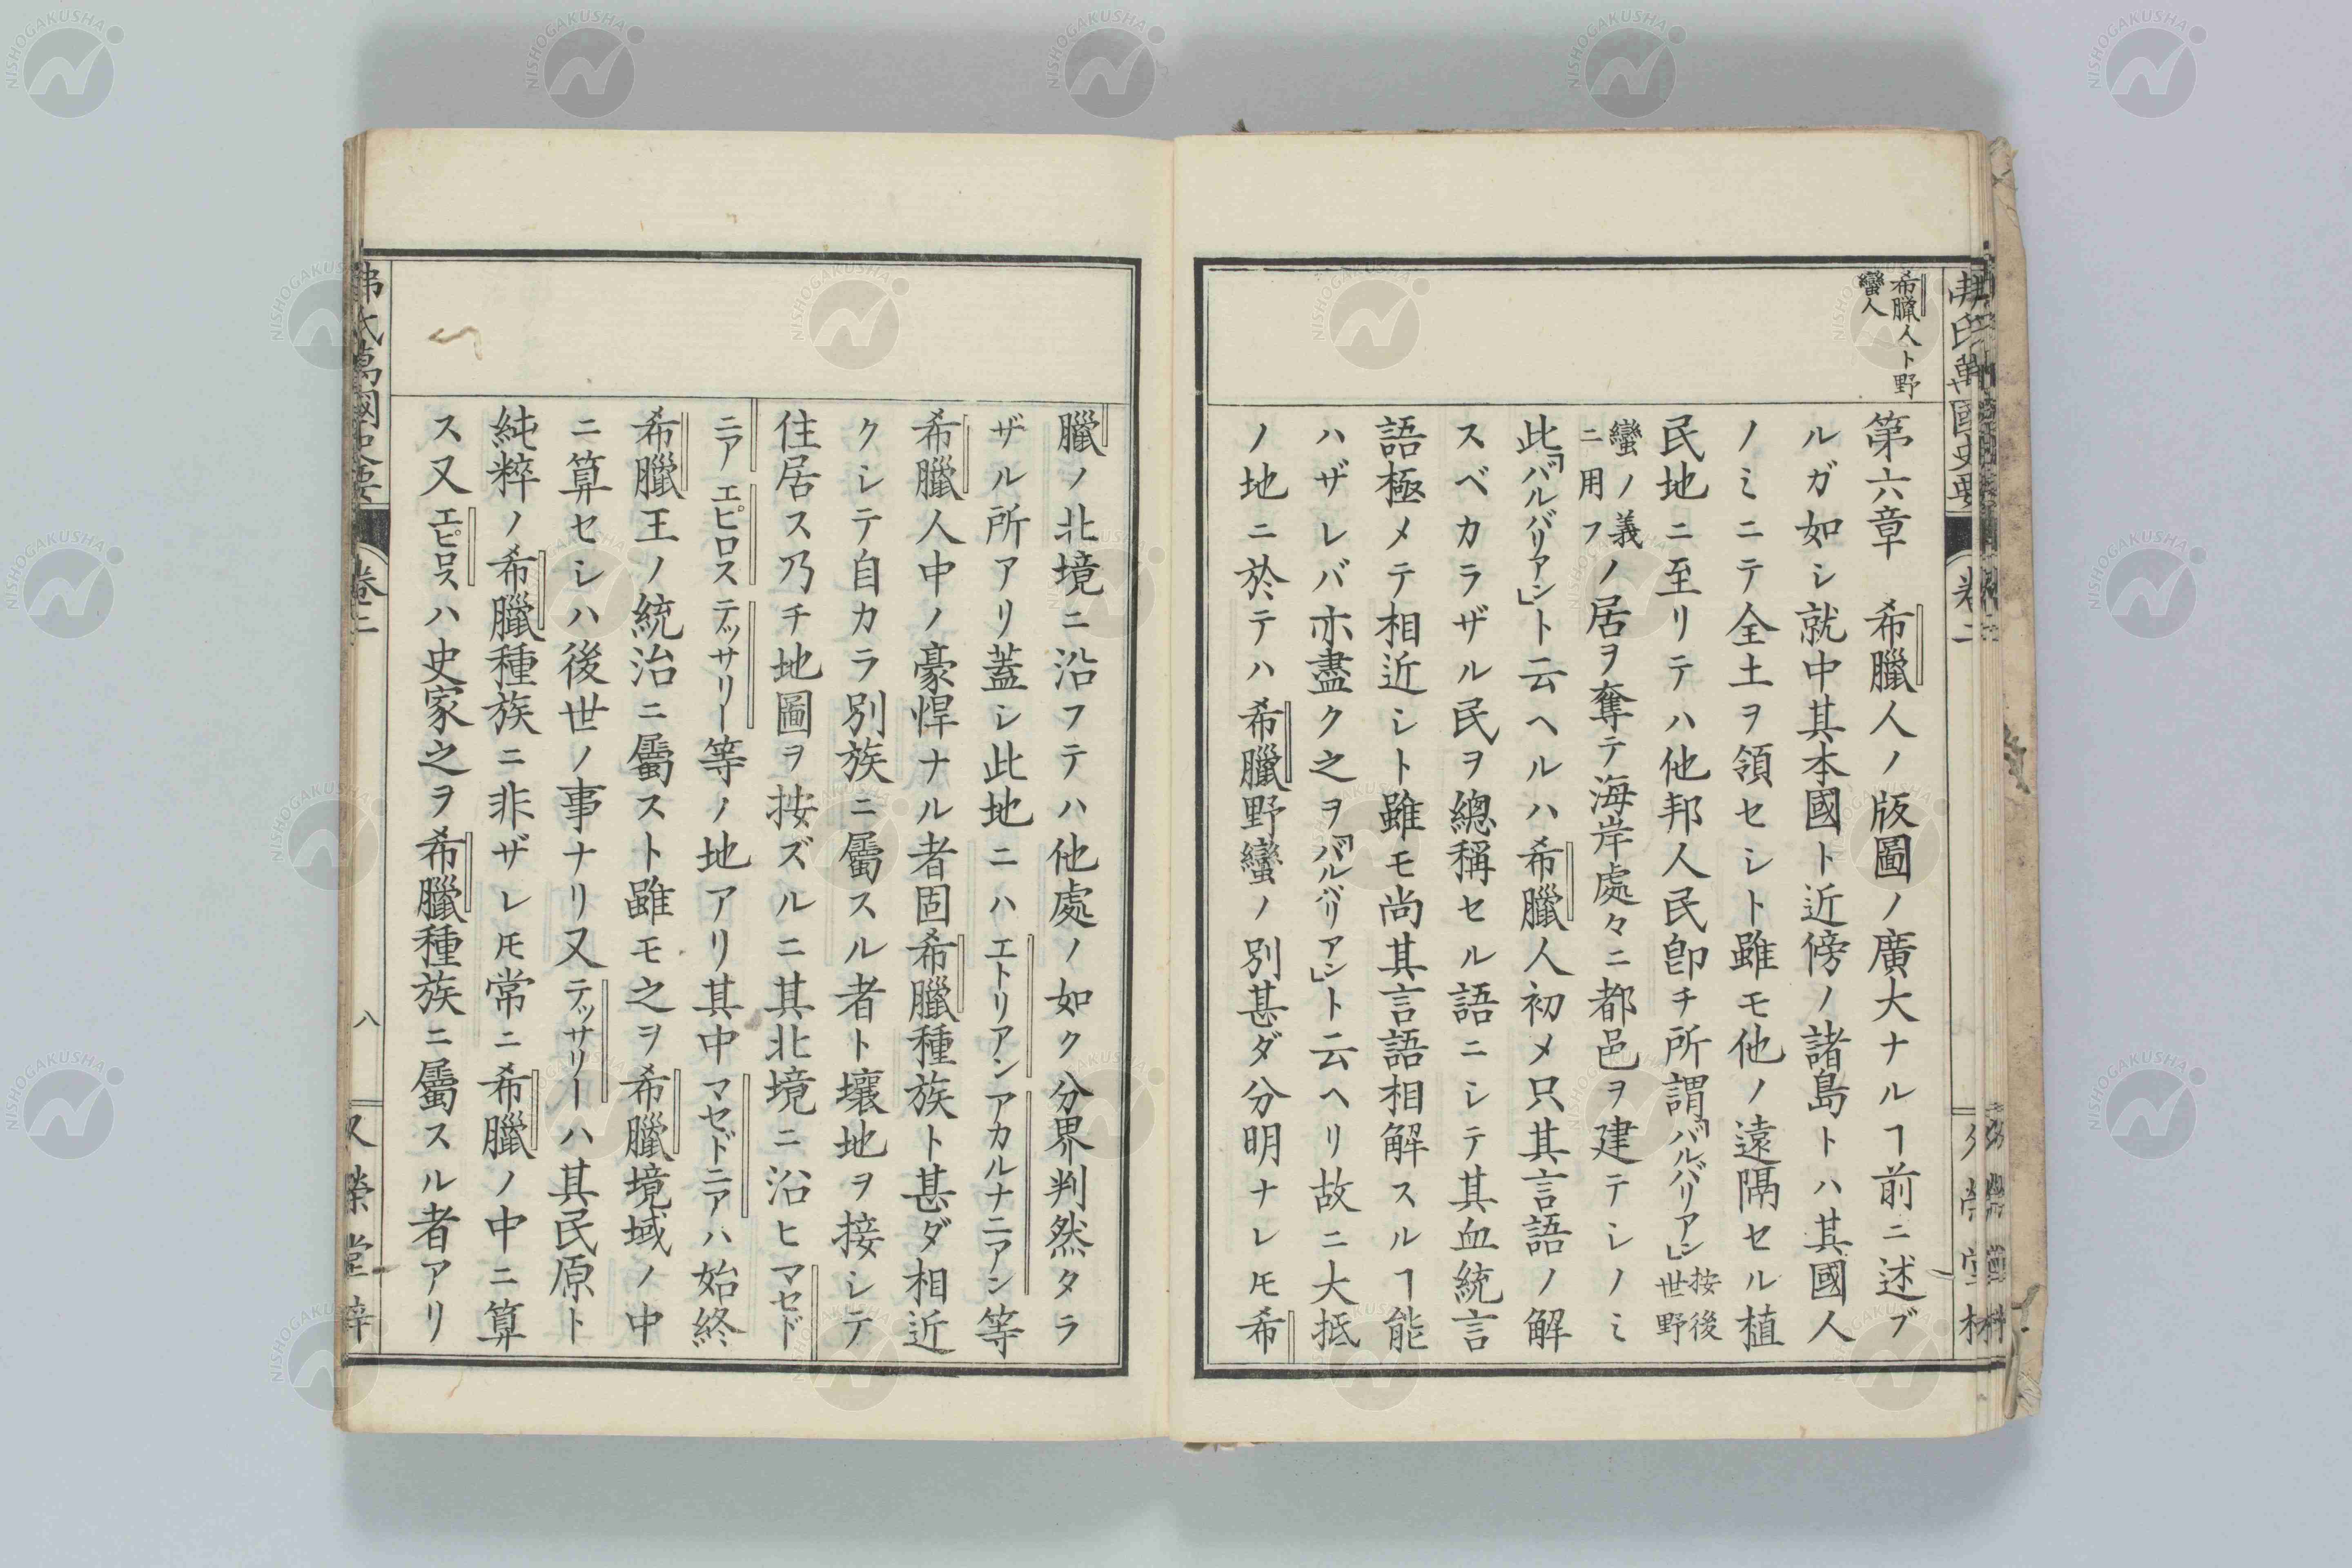 希臘人ト野
蠻人
第六章　希臘人ノ版圖ノ廣大ナルヿ前ニ述ブ
ルガ如シ就中其本國ト近傍ノ諸島トハ其國人
ノミニテ全土ヲ領セシト雖モ他ノ遠隔セル植
民地ニ至リテハ他邦人民卽チ所謂「バルバリアン」按後世野
蠻ノ義ニ用フノ居ヲ奪テ海岸處々ニ都邑ヲ建テシノミ
此「バルバリアン」ト云ヘルハ希臘人初メ只其言語ノ解
スベカラザル民ヲ總稱セル語ニシテ其血統言
語極メテ相近シト雖モ尚其言語相解スルヿ能
ハザレバ亦盡ク之ヲ「バルバリアン」ト云ヘリ故ニ大抵
ノ地ニ於テハ希臘野蠻ノ別甚ダ分明ナレ𪜈希
臘ノ北境ニ沿フテハ他處ノ如ク分界判然タラ
ザル所アリ蓋シ此地ニハエトリアンアカルナニアン等
希臘人中ノ豪悍ナル者固希臘種族ト甚ダ相近
クシテ自カラ別族ニ屬スル者ト壤地ヲ接シテ
住居ス乃チ地圖ヲ按ズルニ其北境ニ沿ヒマセド
ニアエピロステッサリー等ノ地アリ其中マセドニアハ始終
希臘王ノ統治ニ屬スト雖モ之ヲ希臘境域ノ中
ニ算セシハ後世ノ事ナリ又テッサリーハ其民原ト
純粹ノ希臘種族ニ非ザレ𪜈常ニ希臘ノ中ニ算
ス又エピロスハ史家之ヲ希臘種族ニ屬スル者アリ
弗氏萬國史要
卷二
八
又榮堂梓
NISHOGAKUSHA